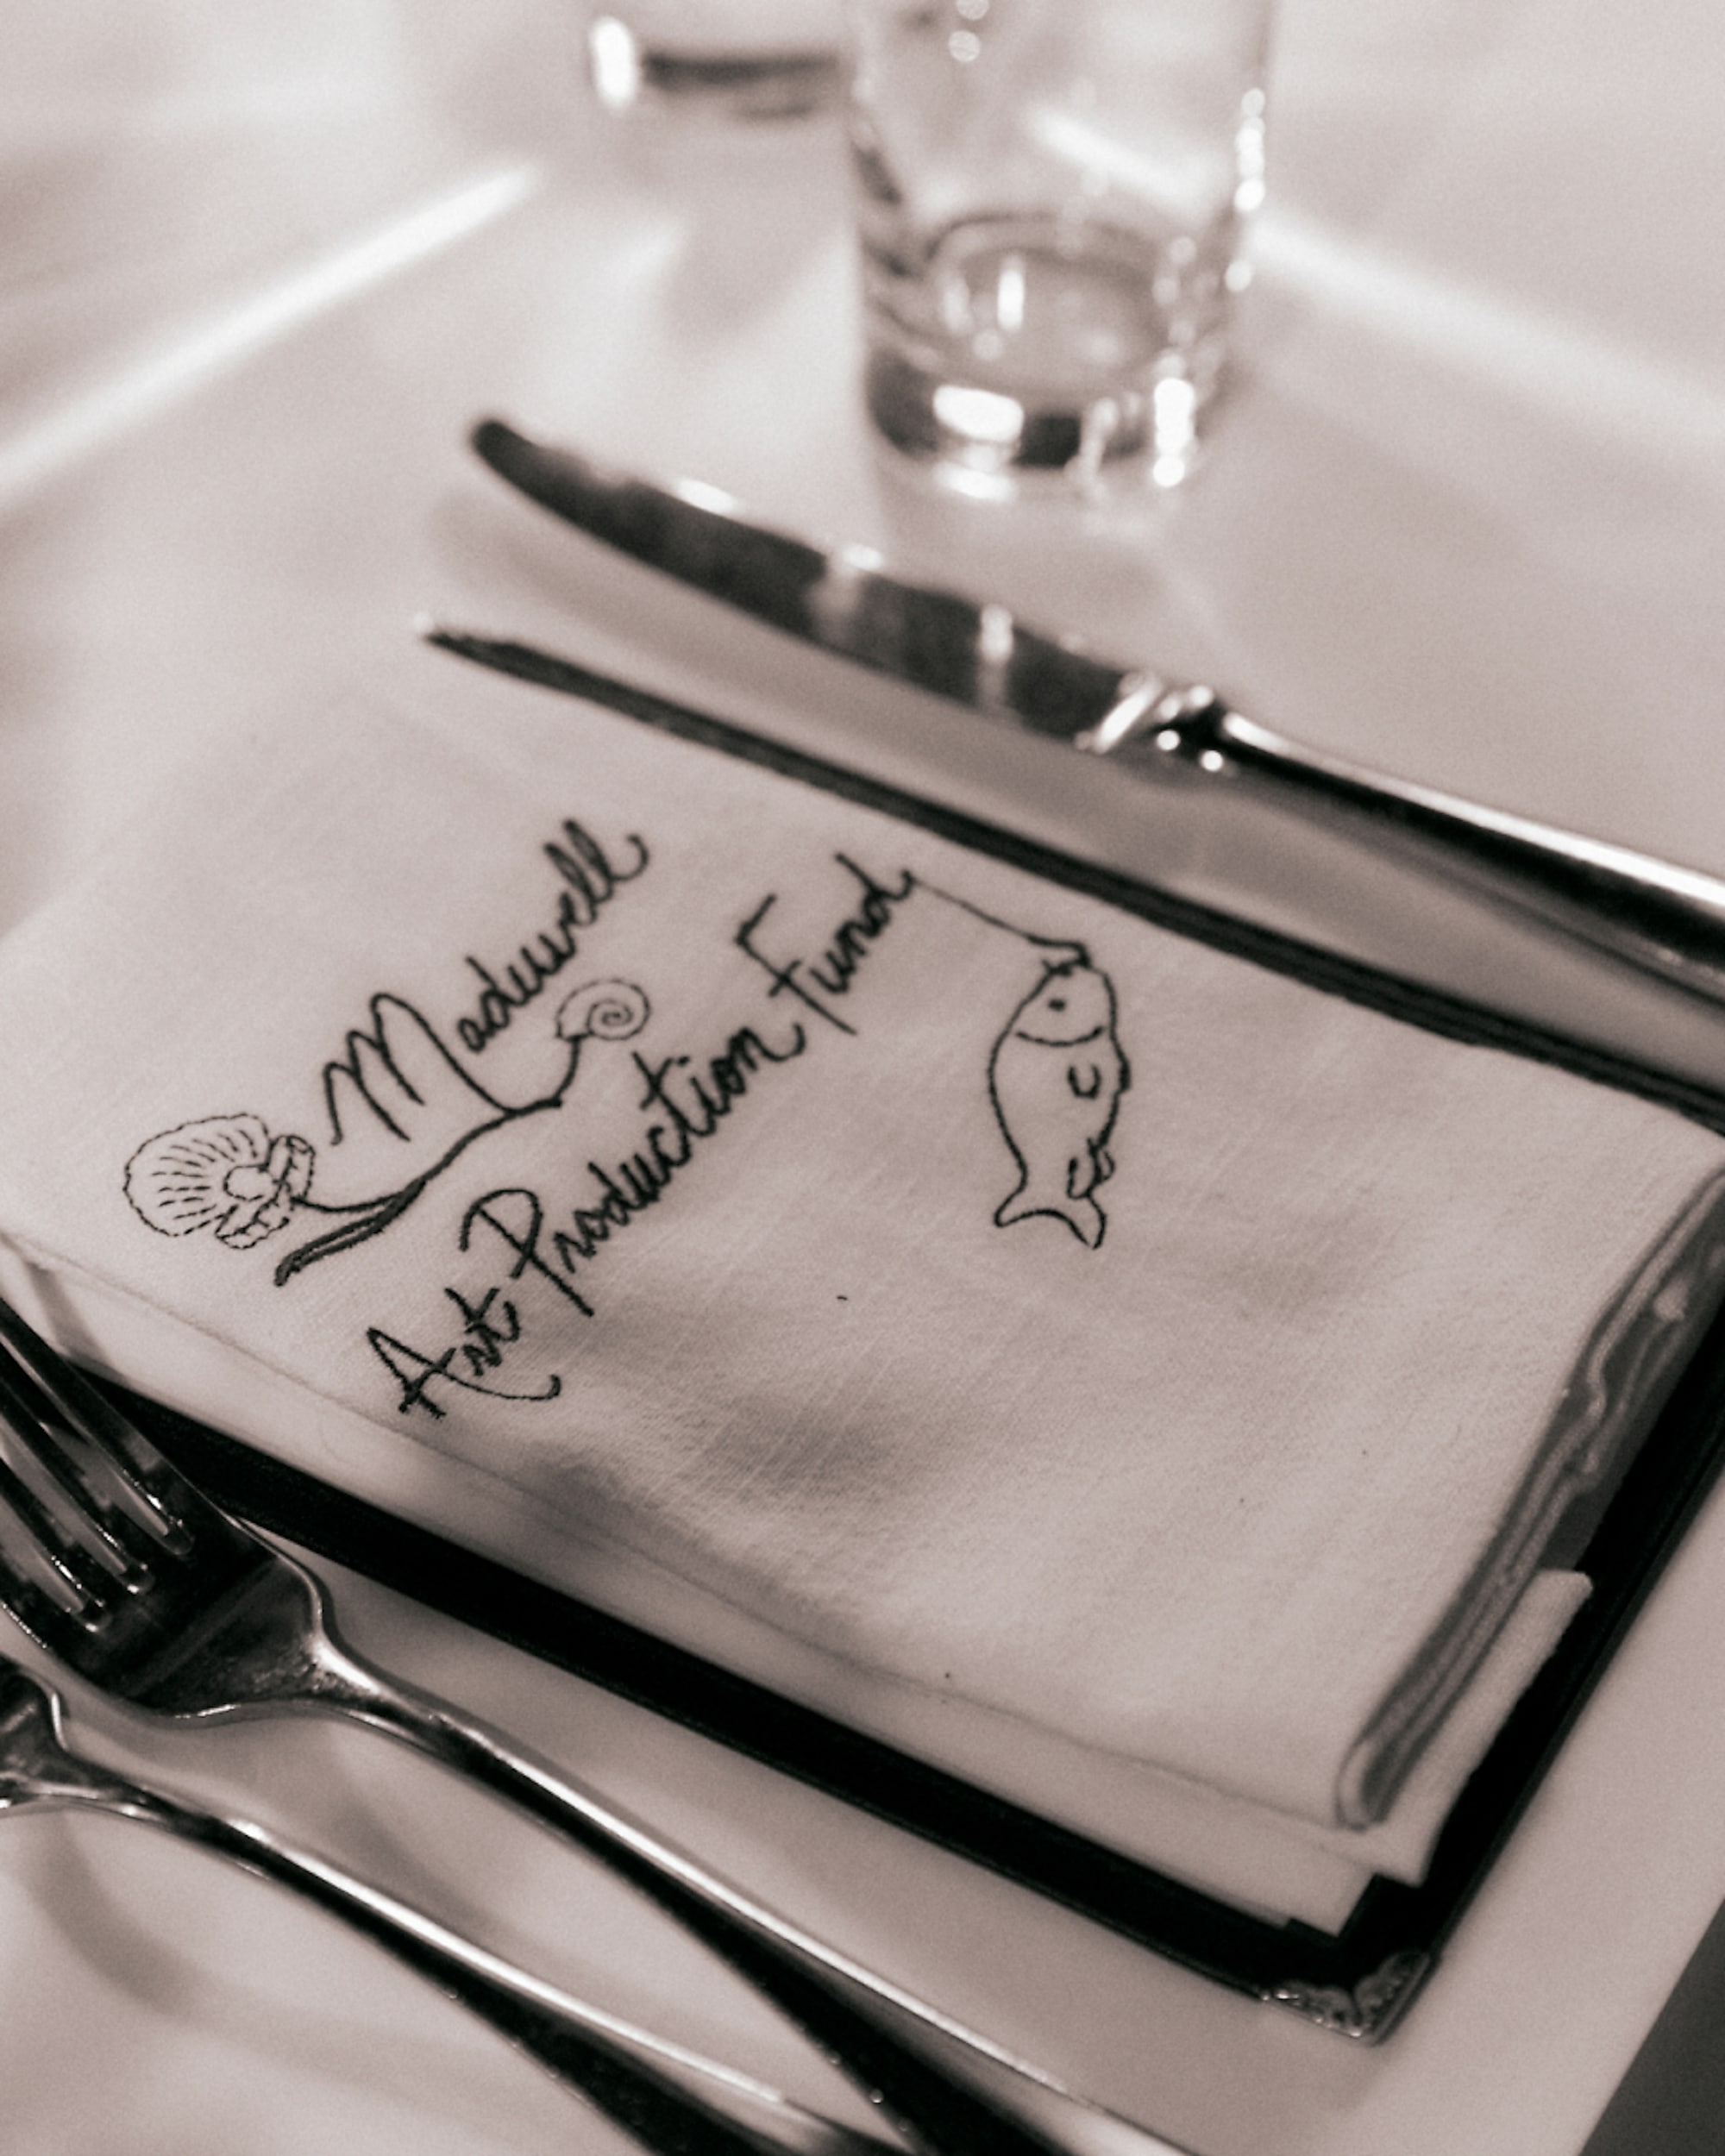 Madewell
Art Production Fund